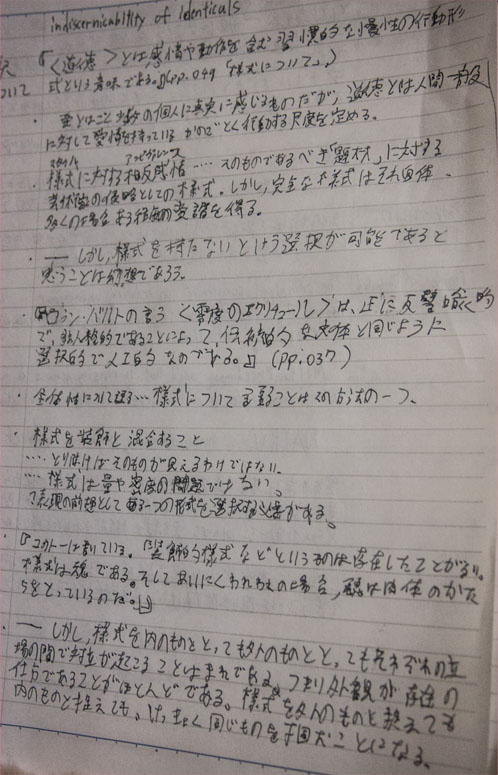 indiscernibility of identicals
「〈道徳〉とは感情や動作を含む習慣的な慢性の行動形
式という意味である。」(pp.049 「様式について」)
ついて
の個人に真実に感じるものだが、道徳とは人間一般
に対して愛情を持っているかのごとく行動する尺度を定める。
スタイル
様式に対する相反感情 ‥‥ そのものであるべき「題材」に対する
としての様式。しかし、完全な様式はそれ自体、
多くの場合ある程度の を得る。
— しかし、様式を持たないという選択が可能であると
思うことは幻想であろう。
『ロラン・バルトの言う〈零度のエクリチュール〉は、正に反譬喩的
で、非人格的であることによって、伝統的な文体と同じように
選択的で人工的なのである。』(pp.037)
全体性について語る… 様式について語ることはその方法の一つ。
様式を装飾と混合すること
‥‥ とり除けばそのものが見えるわけではない。
‥‥ 様式は量や密度の問題ではない。
表現の前提としてある一つの形式を選択する必要がある。
『コクトーは書いている。「装飾的様式などというものは存在したことがない。
様式は魂である。そしてあいにくわれわれの場合、魂は肉体のかた
ちをとっているのだ。」』
— しかし、様式を内のものととっても外のものととってもそれぞれの立
場の間で対立が起こることはまれである。つまり外観が存在の
仕方であることがほとんどである。様式を外のものと捉えても
内のものと捉えても、けっきょく同じものを ことになる。